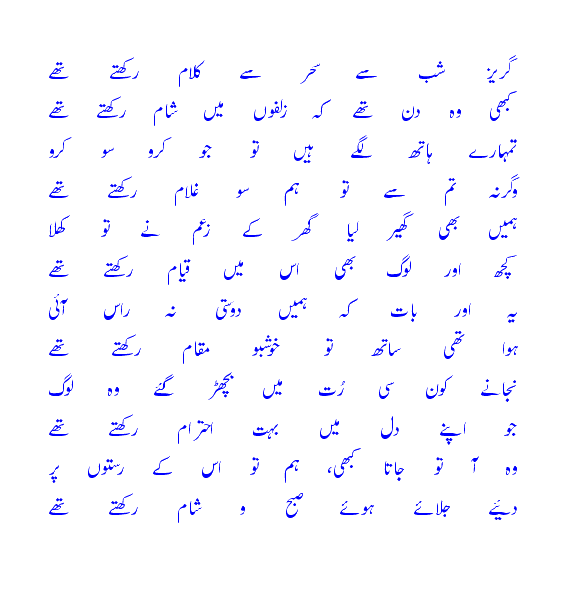 گریز شب سے سحر سے کلام رکھتے تھے
کبھی وہ دن تھے کہ زلفوں میں شام رکھتے تھے
تمہارے ہاتھ لگے ہیں تو جو کرو سو کرو
وگرنہ تم سے تو ہم سو غلام رکھتے تھے
ہمیں بھی گھیر لیا گھر کے زعم نے تو کھلا
کچھ اور لوگ بھی اس میں قیام رکھتے تھے
یہ اور بات کہ ہمیں دوستی نہ راس آئی
ہوا تھی ساتھ تو خوشبو مقام رکھتے تھے
نجانے کون سی رُت میں بچھڑ گئے وہ لوگ
جو اپنے دل میں بہت احترام رکھتے تھے
وہ آ تو جاتا کبھی، ہم تو اس کے رستوں پر
دئیے جلائے ہوئے صبح و شام رکھتے تھے